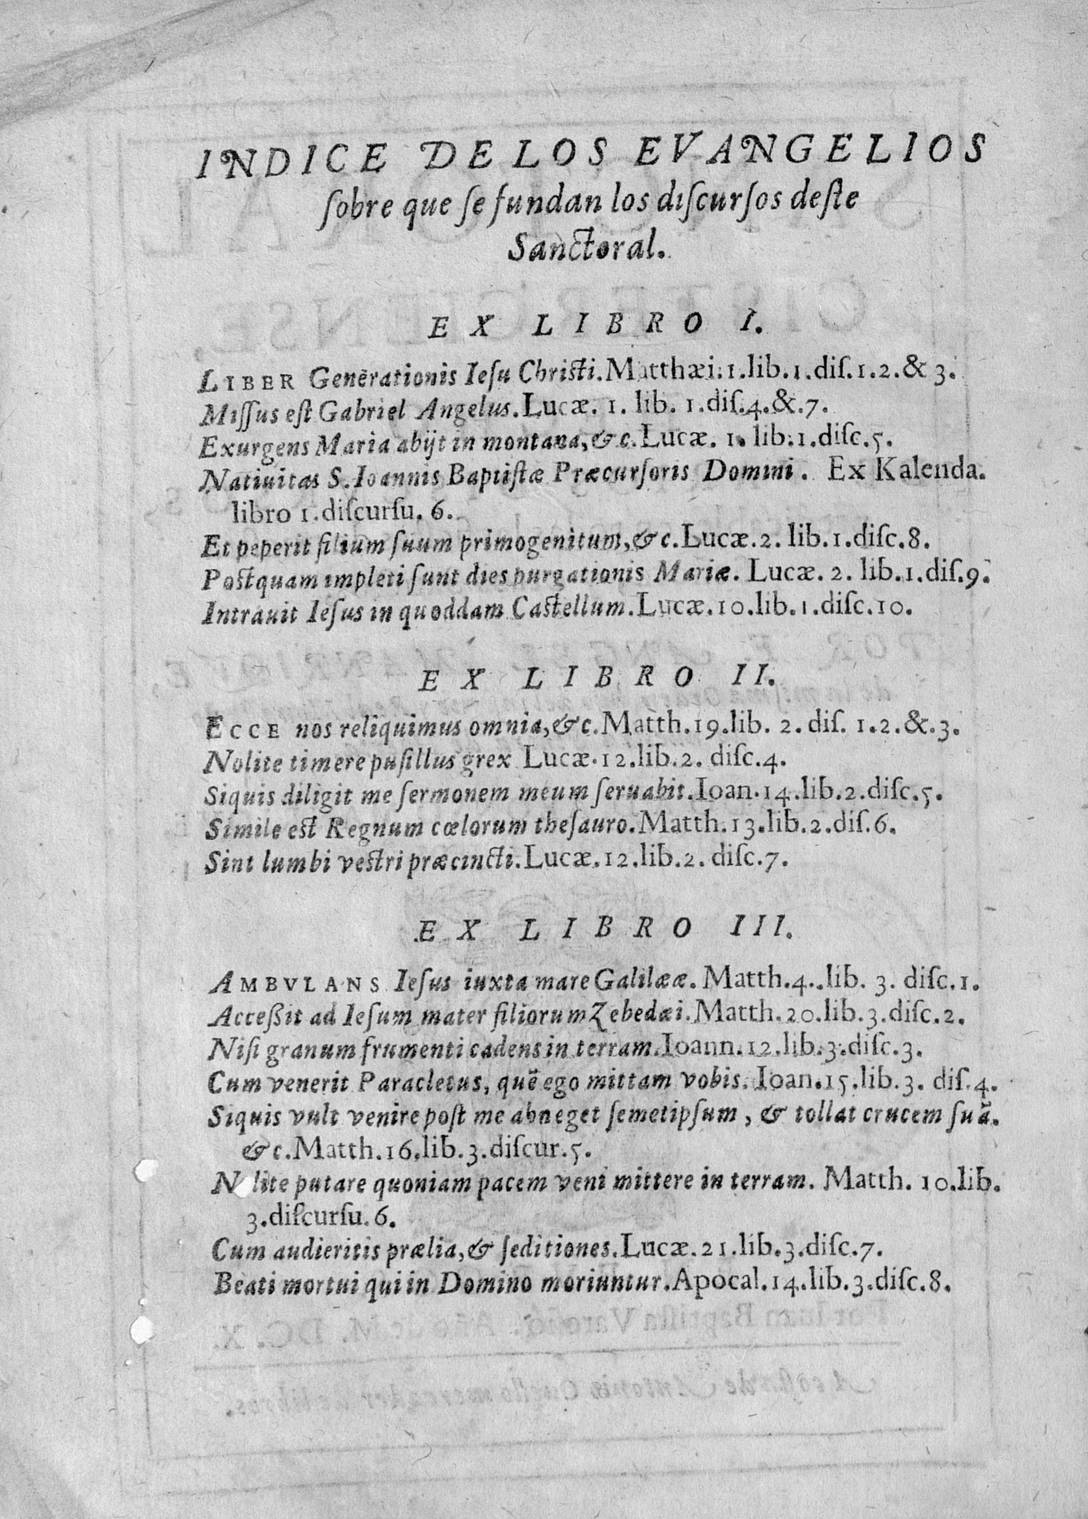 INDICE DE LOS EVANGELIOS
ſobre que ſe fundan los diſcurſos deſte
Sanctoral.
EX LIBRO I.
LIBER Genērationis Ieſu Chriſti. Matthæi. 1. lib. 1. diſ. 1. 2. & 3.
Miſſus eſt Gabriel Angelus. Lucæ. 1. lib. 1. diſ. 4. &. 7.
Exurgens Maria abijt in montana, & c. Lucæ. 1. lib. 1. diſc. 5.
Natiuitas S. Ioannis Baptiſtæ Præcurſoris Domini. Ex Kalenda.
libro 1. diſcurſu. 6.
Et peperit filium ſuum primogenitum, & c. Lucæ. 2. lib. 1. diſc. 8.
Poſtquam impleti ſunt dies purgationis Mariæ. Lucæ. 2. lib. 1. diſ. 9.
Intrauit Ieſus in quoddam Caſtellum. Lucæ. 10. lib. 1. diſc. 10.
EX LIBRO II.
ECCE nos reliquimus omnia, & c. Matth. 19. lib. 2. diſ. 1. 2. &. 3.
Nolite timere puſillus grex Lucæ. 12. lib. 2. diſc. 4.
Siquis diligit me ſermonem meum ſeruabit. Ioan. 14. lib. 2. diſc. 5.
Simile eſt Regnum cœlorum theſauro. Matth. 13. lib. 2. diſ. 6.
Sint lumbi veſtri præcincti. Lucæ. 12. lib. 2. diſc. 7.
EX LIBRO III.
AMBVLANS Ieſus iuxta mare Galilææ. Matth. 4. lib. 3. diſc. 1.
Acceßit ad Ieſum mater filiorum Zebedæi. Matth. 20. lib. 3. diſc. 2.
Niſi granum frumenti cadens in terram. Ioann. 12. lib. 3. diſc. 3.
Cum venerit Paracletus, quē ego mittam vobis. Ioan. 15. lib. 3. diſ. 4.
Siquis vult venire poſt me abneget ſemetipſum, & tollat crucem ſuā.
& c. Matth. 16. lib. 3. diſcur. 5.
Nolite putare quoniam pacem veni mittere in terram. Matth. 10. lib.
3. diſcurſu. 6.
Cum audieritis prælia, & ſeditiones. Lucæ. 21. lib. 3. diſc. 7.
Beati mortui qui in Domino moriuntur. Apocal. 14. lib. 3. diſc. 8.